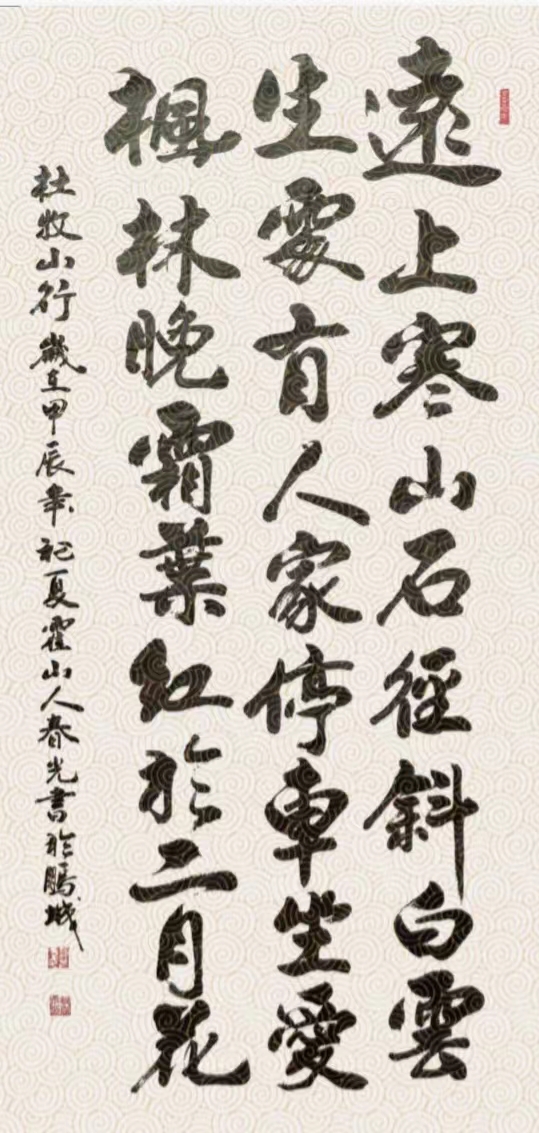 遠上寒山石徑斜白雲
生處有人家停車坐愛
楓林晚霜葉紅於二月花
杜牧山行歲在甲辰年祀夏霍山人春光書於鵬城